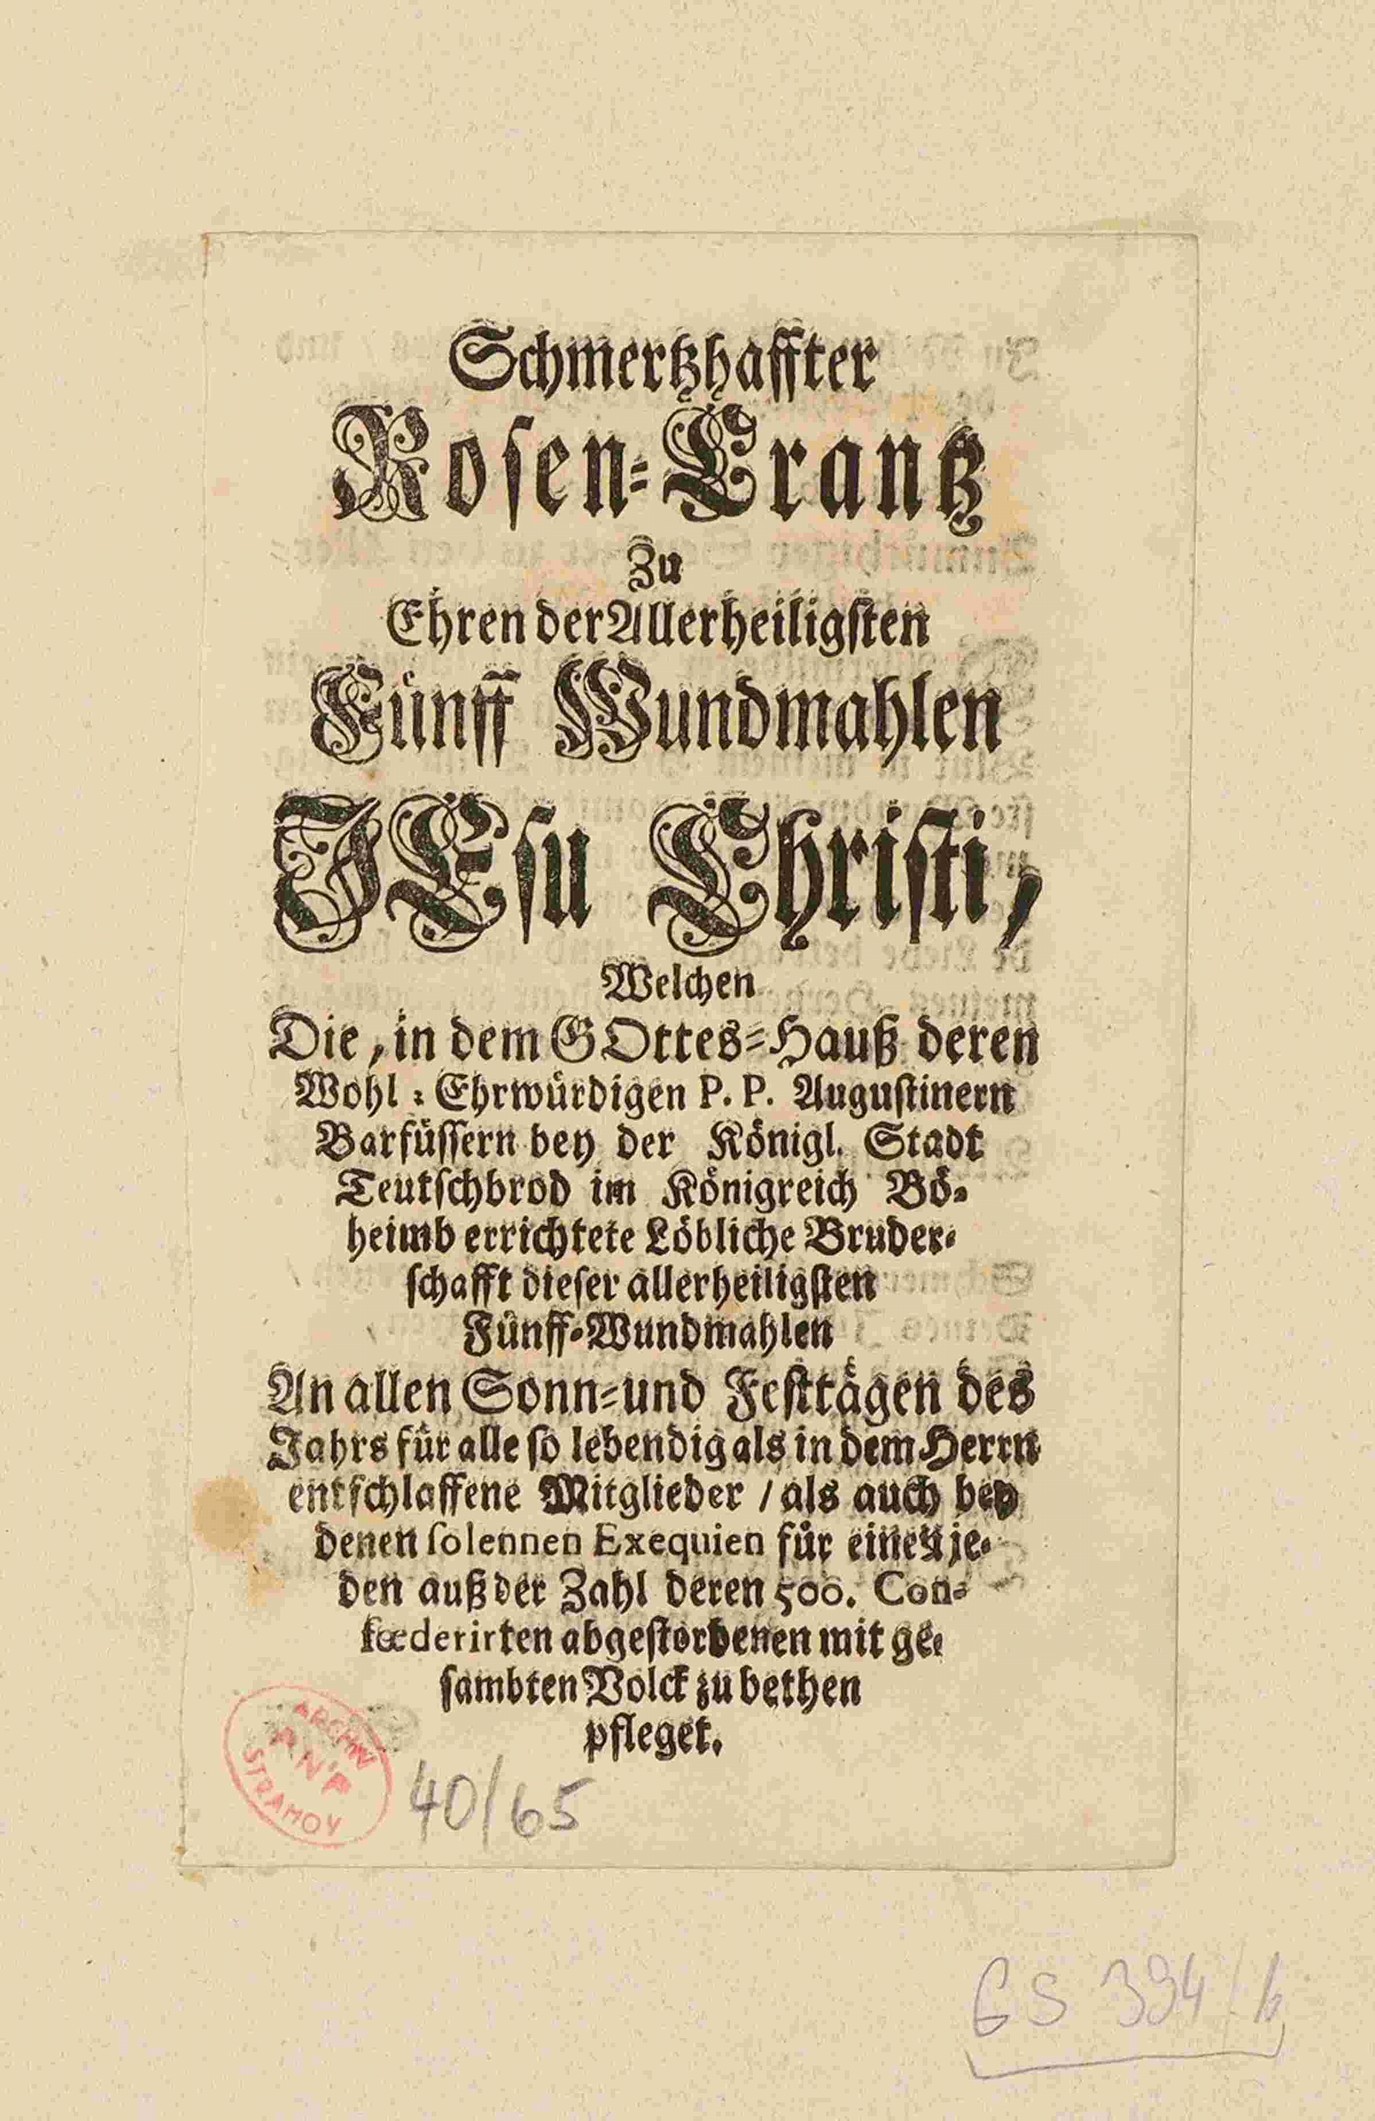 Schmertzhaffter
Rosen=Crantz
Zu
Ehren der Allerheiligsten
Fünff Wundmahlen
JEsu Christi,
Welchen
Die, in dem GOttes=Hauß deren
Wohl=Ehrwürdigen P. P. Augustinern
Barfüssern bey der Königl. Stadt
Teutschbrod im Königreich Bö=
heimb errichtete Löbliche Bruder=
schafft dieser allerheiligsten
Fünff=Wundmahlen
An allen Sonn=und Festtägen des
Jahrs für alle so lebendig als in dem Herrn
entschlaffene Mitglieder / als auch bey
denen solennen Exequien für einen je=
den auß der Zahl deren 500. Con=
fœderirten abgestorbenen mit ge=
sambten Volck zu bethen
pfleget.
ARCHIV
PNP
STRAHOV
40/65
GS 394/b